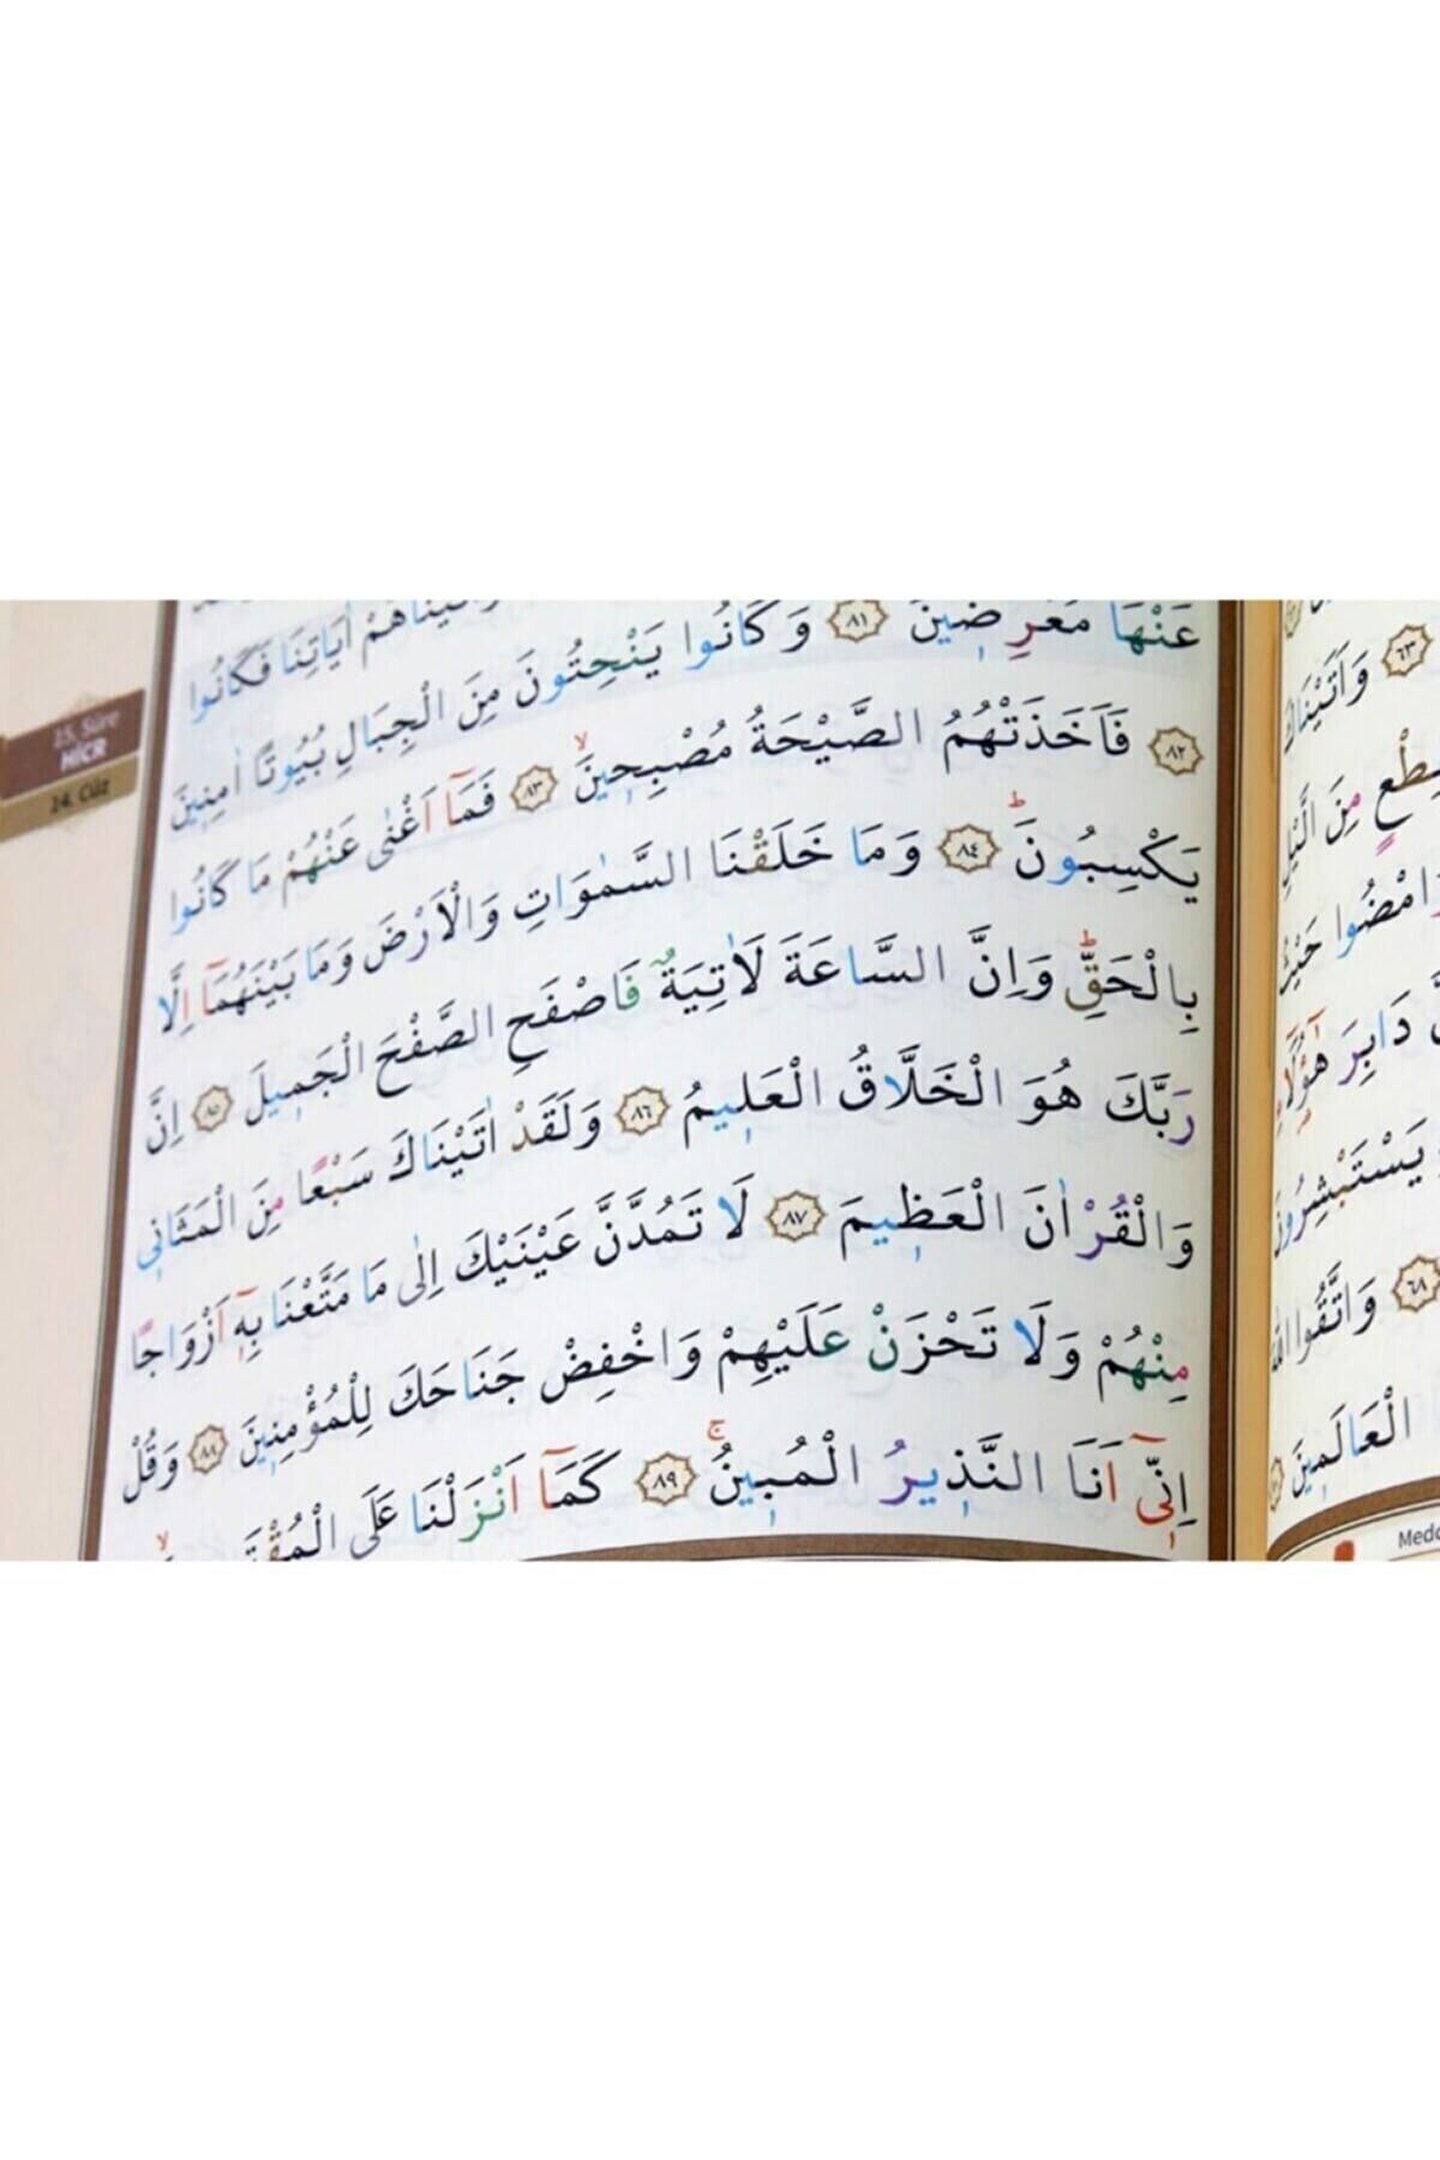 وَاٰتَيْنَاهُمْ اٰيَاتِنَا فَكَانُوا
عَنْهَا مُعْرِضٖينَ ﴿٨١﴾ وَكَانُوا يَنْحِتُونَ مِنَ الْجِبَالِ بُيُوتًا اٰمِنٖينَ
﴿٨٢﴾ فَاَخَذَتْهُمُ الصَّيْحَةُ مُصْبِحٖينَۙ ﴿٨٣﴾ فَمَٓا اَغْنٰى عَنْهُمْ مَا كَانُوا
يَكْسِبُونَؕ ﴿٨٤﴾ وَمَا خَلَقْنَا السَّمٰوَاتِ وَالْاَرْضَ وَمَا بَيْنَهُمَٓا اِلَّا
بِالْحَقِّؕ وَاِنَّ السَّاعَةَ لَاٰتِيَةٌ فَاصْفَحِ الصَّفْحَ الْجَمٖيلَ ﴿٨٥﴾ اِنَّ
رَبَّكَ هُوَ الْخَلَّاقُ الْعَلٖيمُ ﴿٨٦﴾ وَلَقَدْ اٰتَيْنَاكَ سَبْعًا مِنَ الْمَثَانٖى
وَالْقُرْاٰنَ الْعَظٖيمَ ﴿٨٧﴾ لَا تَمُدَّنَّ عَيْنَيْكَ اِلٰى مَا مَتَّعْنَا بِهٖٓ اَزْوَاجًا
مِنْهُمْ وَلَا تَحْزَنْ عَلَيْهِمْ وَاخْفِضْ جَنَاحَكَ لِلْمُؤْمِنٖينَ ﴿٨٨﴾ وَقُلْ
اِنّٖٓى اَنَا النَّذٖيرُ الْمُبٖينُۚ ﴿٨٩﴾ كَمَٓا اَنْزَلْنَا عَلَى
15. Sûre
HİCR
14. Cüz
﴿٦٣﴾ وَاَتَيْنَاكَ
مِنَ الَّيْلِ
وَامْضُوا حَيْثُ
دَابِرَ هٰٓؤُ۬لَٓاءِ
يَسْتَبْشِرُونَ
﴿٦٨﴾ وَاتَّقُوا اللّٰهَ
الْعَالَمٖينَ